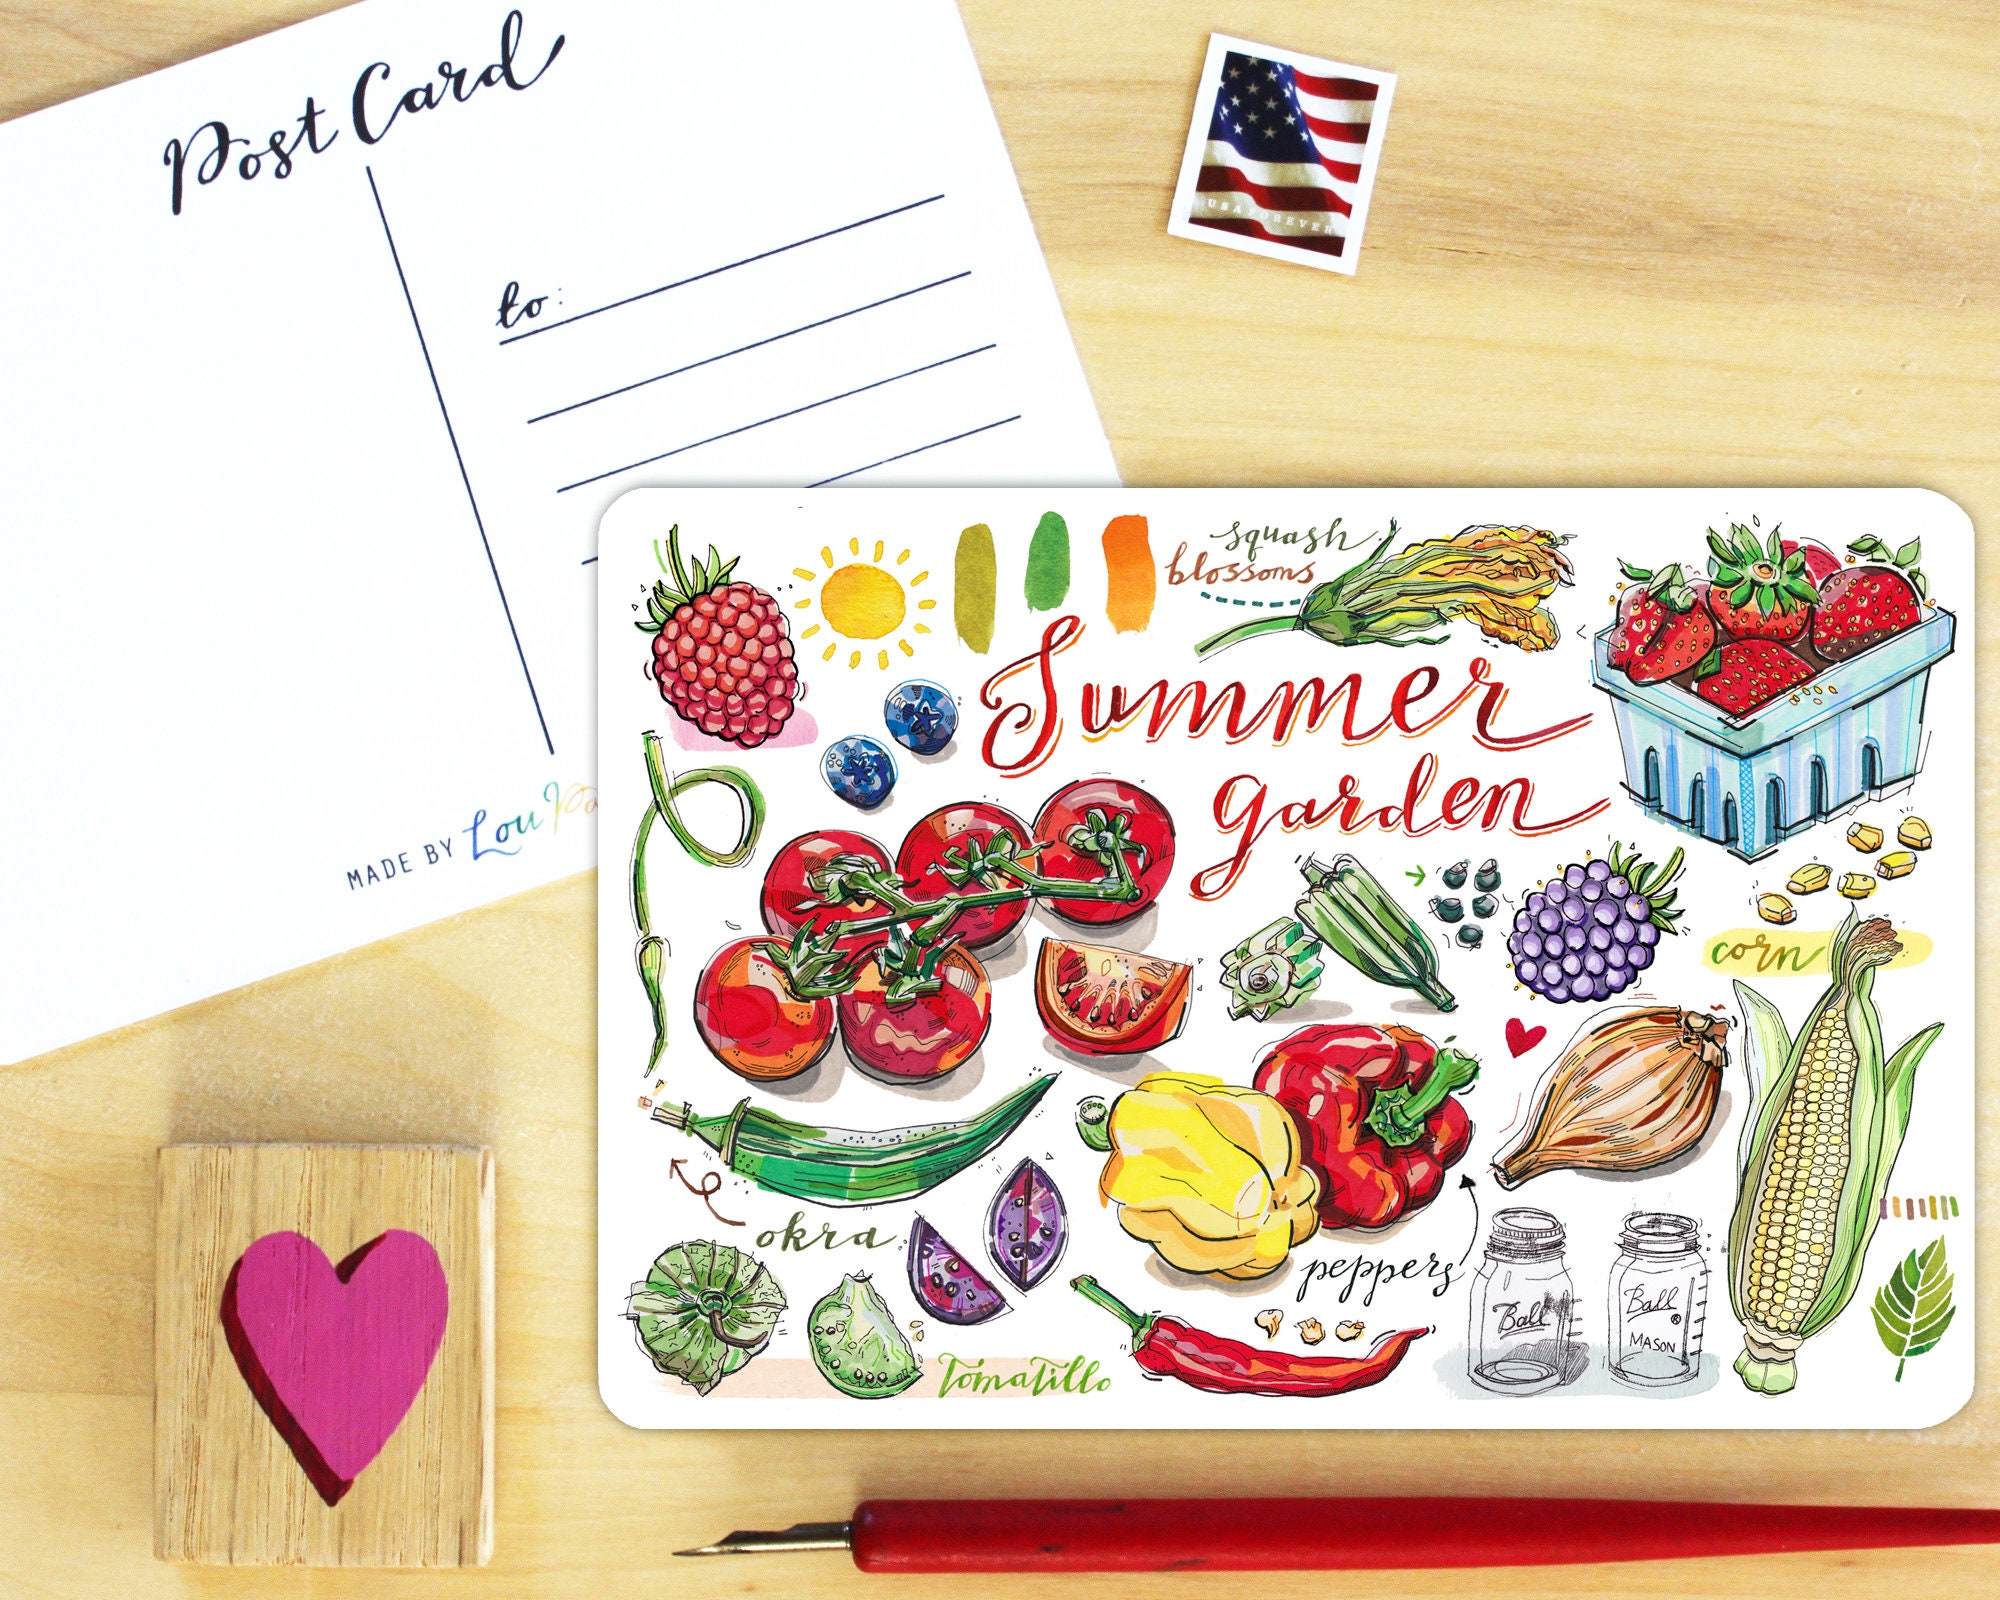 Post Card
to:
MADE BY Lou
USA FOREVER
squash
blossoms
Summer
garden
corn
okra
peppers
Ball
Ball
MASON
Tomatillo